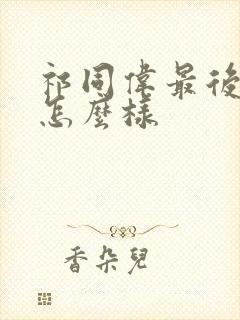 祁同偉最後
怎麼樣
香朵兒